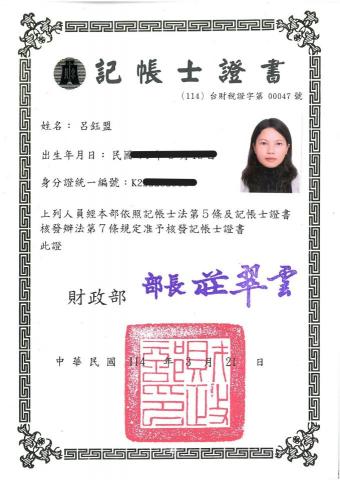 記帳士證書
(114) 台財稅證字第 00047 號
姓名：呂鈺盟
出生年月日：民國
身分證統一編號：K2
上列人員經本部依照記帳士法第5條及記帳士證書
核發辦法第7條規定准予核發記帳士證書
此證
財政部 部長 莊翠雲
中華民國 114 年 3 月 21 日
財政
部印